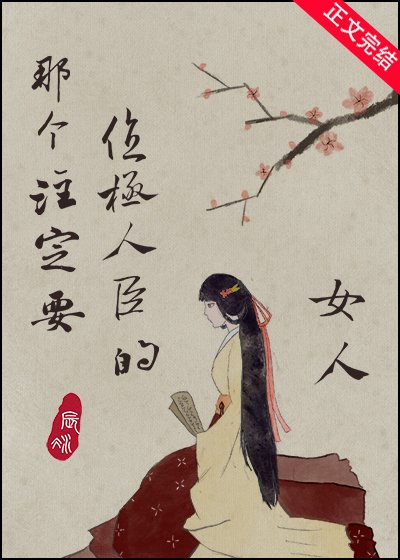 正文完结
那个注定要
位極人臣的
女人